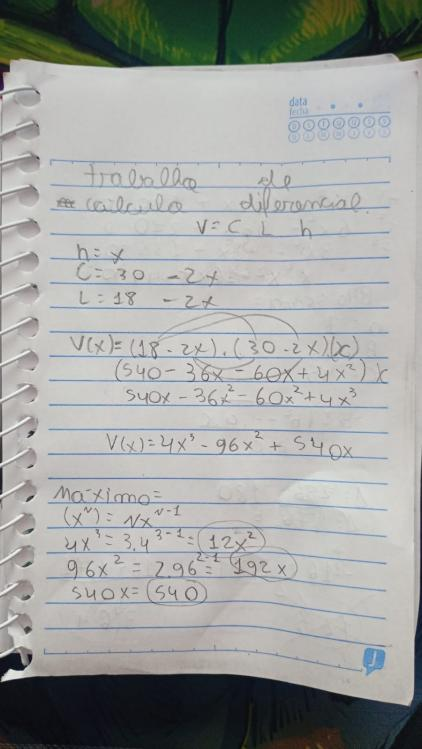 data
fecha
trabalho de
calculo diferencial.
V = C. L h
h = x
C = 30 - 2x
L = 18 - 2x
V(x) = (18 - 2x) . (30 - 2x)(x)
(540 - 36x - 60x + 4x²) x
540x - 36x² - 60x² + 4x³
V(x) = 4x³ - 96x² + 540x
Máximo =
(xᴺ) = Nxᴺ⁻¹
4x³ = 3.4³⁻¹ = 12x²
96x² = 2.96²⁻¹ = 192x
540x = 540
J